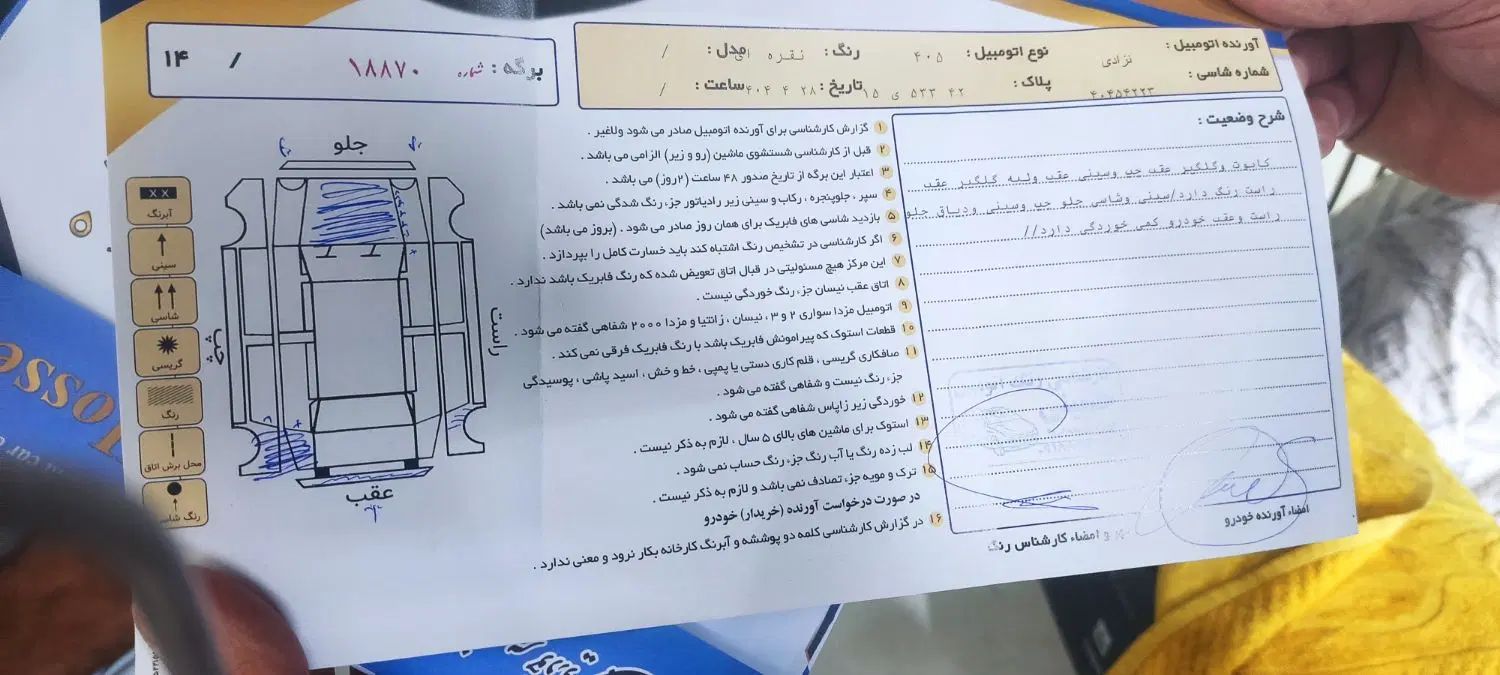 آورنده اتومبیل : نژادی نوع اتومبیل : ۴۰۵ رنگ : نقره ای مدل : /
شماره شاسی : ۴۰۴۵۴۲۲۳ پلاک : ۴۲ ۵۳۳ ی ۱۵ تاریخ : ۲۸ ۴ ۴۰۴ ساعت : /
برگه : شماره ۱۸۸۷۰ / ۱۴
شرح وضعیت :
کاپوت وگلگیر عقب چپ وسینی عقب ولبه گلگیر عقب
راست رنگ دارد/سینی وشاسی جلو چپ وسینی ودیاق جلو
راست وعقب خودرو کمی خوردگی دارد//
امضاء آورنده خودرو
و امضاء کارشناس رنگ
۱ گزارش کارشناسی برای آورنده اتومبیل صادر می شود ولاغیر .
۲ قبل از کارشناسی شستشوی ماشین (رو و زیر) الزامی می باشد .
۳ اعتبار این برگه از تاریخ صدور ۴۸ ساعت (۲روز) می باشد .
۴ سپر ، جلوپنجره ، رکاب و سینی زیر رادیاتور جزء رنگ شدگی نمی باشد .
۵ بازدید شاسی های فابریک برای همان روز صادر می شود . (بروز می باشد)
۶ اگر کارشناسی در تشخیص رنگ اشتباه کند باید خسارت کامل را بپردازد .
۷ این مرکز هیچ مسئولیتی در قبال اتاق تعویض شده که رنگ فابریک باشد ندارد .
۸ اتاق عقب نیسان جزء رنگ خوردگی نیست .
۹ اتومبیل مزدا سواری ۲ و ۳ ، نیسان ، زانتیا و مزدا ۲۰۰۰ شفاهی گفته می شود .
۱۰ قطعات استوک که پیرامونش فابریک باشد با رنگ فابریک فرقی نمی کند .
۱۱ صافکاری گریسی ، قلم کاری دستی یا پمپی ، خط و خش ، اسید پاشی ، پوسیدگی
جزء رنگ نیست و شفاهی گفته می شود .
۱۲ خوردگی زیر زاپاس شفاهی گفته می شود .
۱۳ استوک برای ماشین های بالای ۵ سال ، لازم به ذکر نیست .
۱۴ لب زده رنگ یا آب رنگ جزء رنگ حساب نمی شود .
۱۵ ترک و مویه جزء تصادف نمی باشد و لازم به ذکر نیست .
در صورت درخواست آورنده (خریدار) خودرو
۱۶ در گزارش کارشناسی کلمه دو پوششه و آبرنگ کارخانه بکار نرود و معنی ندارد .
جلو
راست
چپ
عقب
آبرنگ
سینی
شاسی
گریسی
رنگ
محل برش اتاق
رنگ شاسی